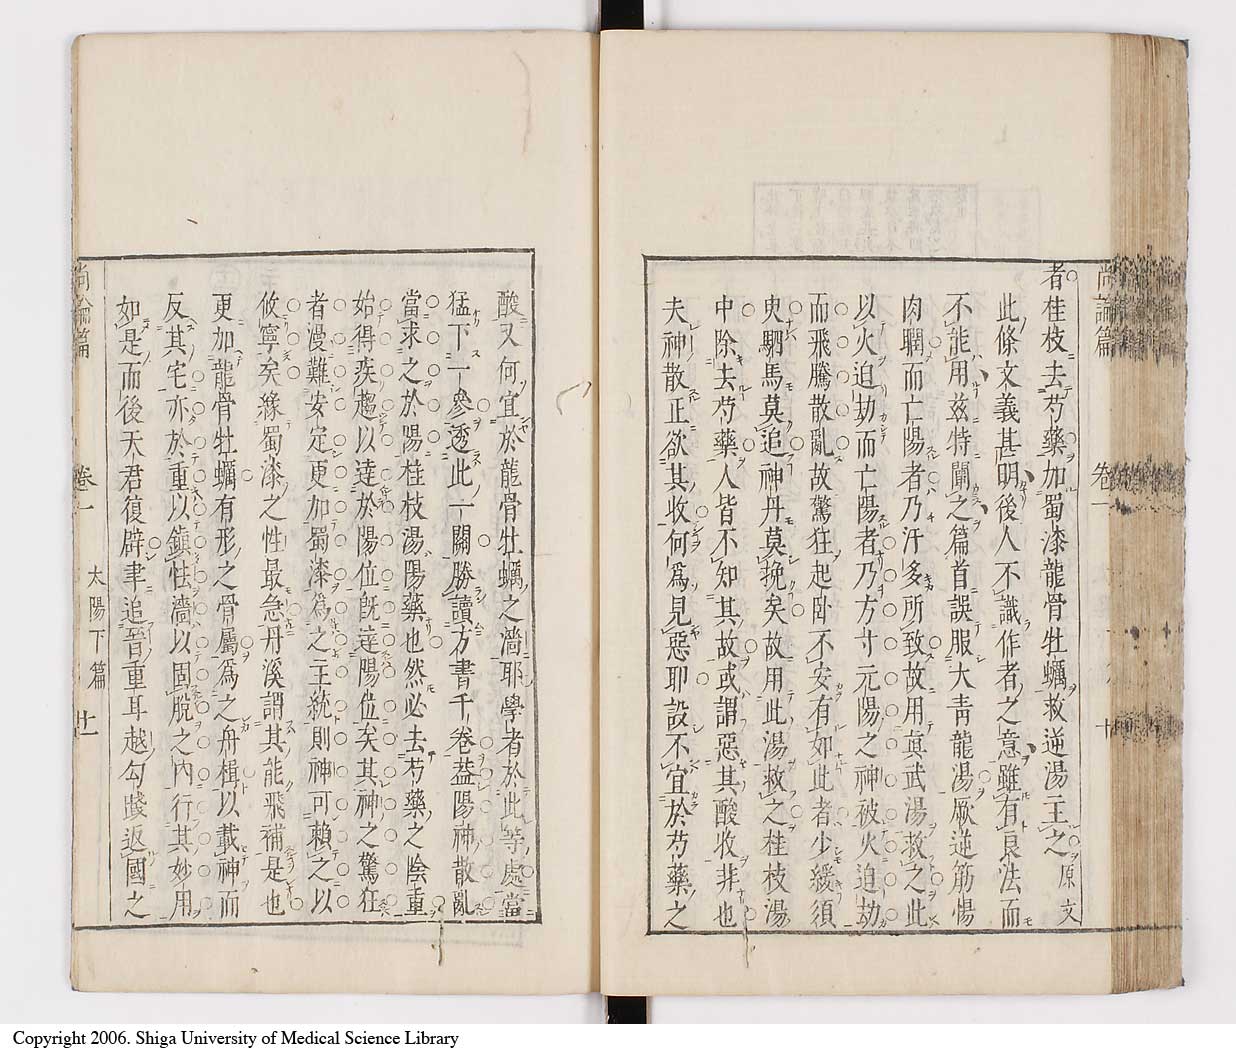 尚論篇 卷一 十
者桂枝去芍藥加蜀漆龍骨牡蠣救逆湯主之原文
此條文義甚明後人不識作者之意雖有良法而
不能用兹特闡之篇首誤服大青龍湯厥逆筋惕
肉瞤而亡陽者乃汗多所致故用眞武湯救之此
以火迫劫而亡陽者乃方寸元陽之神被火迫劫
而飛騰散亂故驚狂起卧不安有如此者少緩須
臾駟馬莫追神丹莫挽矣故用此湯救之桂枝湯
中除去芍藥人皆不知其故或謂惡其酸收非也
夫神散正欲其收何爲見惡耶設不宜於芍藥之
酸又何宜於龍骨牡蠣之濇耶學者於此等處當
猛下一參透此一關勝讀方書千卷葢陽神散亂
當求之於陽桂枝湯陽藥也然必去芍藥之陰重
始得疾趨以達於陽位旣達陽位矣其神之驚狂
者漫難安定更加蜀漆爲之主統則神可賴之以
攸寧矣緣蜀漆之性最急丹溪謂其能飛補是也
更加龍骨牡蠣有形之骨屬爲之舟楫以載神而
反其宅亦於重以鎭怯濇以固脫之內行其妙用
如是而後天君復辟聿追晉重耳越勾踐返國之
尚論篇 卷一 太陽下篇 廿一
Copyright 2006. Shiga University of Medical Science Library